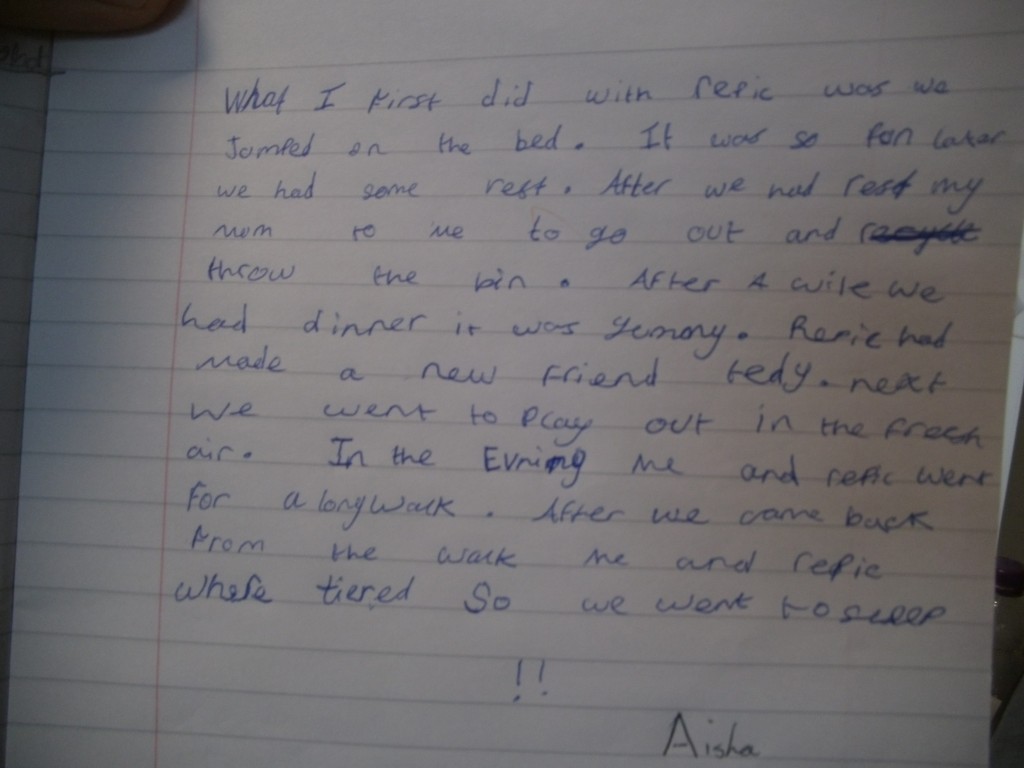 What I first did with repic was we
Jumped on the bed. It was so fun later
we had some rest. After we had rest my
mum to me to go out and
throw the bin. After A wile we
had dinner it was yummy. Repic had
made a new friend tedy. next
we went to play out in the fresh
air. In the Evning me and repic went
for a long walk. After we came back
from the walk me and repic
where tiered So we went to sleep
!!
Aisha